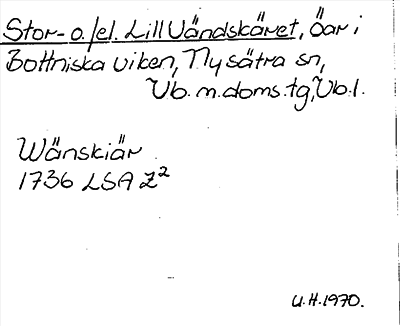 Stor- o./el. Lill Vändskäret, öar i
Bottniska viken, Nysätra sn,
Vb. m. doms. tg, Vb. l.
Wänskiär
1736 LSA Z²
U.H. 1970.